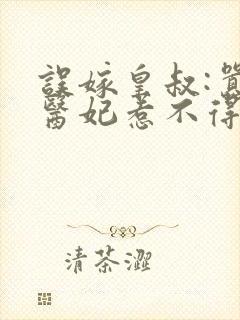 誤嫁皇叔:
醫妃惹不得
清茶澀